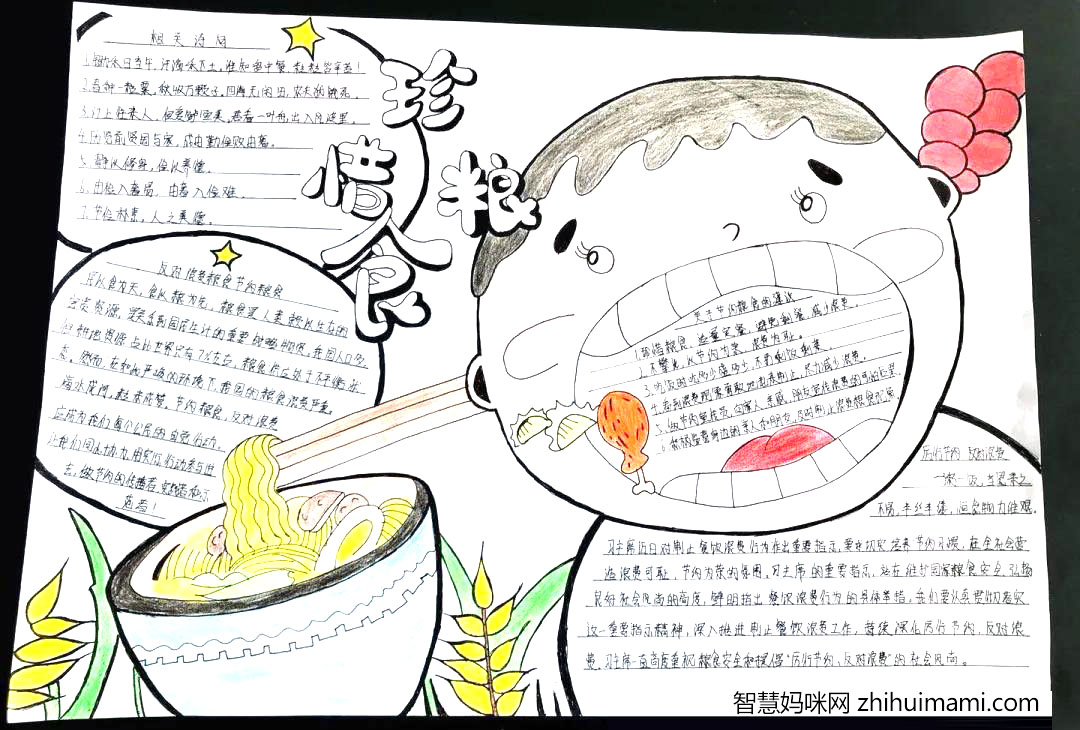 珍惜粮食
相关诗词
1.锄禾日当午,汗滴禾下土,谁知盘中餐,粒粒皆辛苦!
2.春种一粒粟,秋收万颗子,四海无闲田,农夫犹饿死。
3.江上往来人,但爱鲈鱼美,君看一叶舟,出入风波里。
4.历览前贤国与家,成由勤俭败由奢。
5.静以修身,俭以养德。
6.由俭入奢易,由奢入俭难。
7.节俭朴素,人之美德。
反对浪费粮食节约粮食
民以食为天,食以粮为先,粮食是人类赖以生存的
宝贵资源,是关系到国居生计的重要战略物资,我国人口多
但耕地资源占比世界只有7%左右,粮食供应处于不平衡状
态。然而,在如此严峻的环境下,我国的粮食浪费严重。
滴水成河,粒米成箩,节约粮食,反对浪费
应成为我们每个公民的自觉行动,
让我们同心协力,用实际行动参与进
去,做节约的传播者,实践者和示
范者!
关于节约粮食的建议
1.珍惜粮食,适量定餐,避免剩餐,减少浪费。
2.不攀比,以节约为荣,浪费为耻。
3.吃饭时吃多少盛多少,不剩剩饭剩菜。
4.看到浪费现象勇敢地起来制止,尽力减少浪费。
5.做节约宣传员,向家人、亲戚、朋友宣传浪费的可怕后果
6.积极监督身边的亲人和朋友,及时制止浪费粮食现象。
厉行节约 反对浪费
一粥一饭,当思来之
不易,半丝半缕,恒念物力维艰。
习主席近日对制止餐饮浪费行为作出重要指示,要求切实培养节约习惯,在全社会营
造浪费可耻,节约为荣的氛围,习主席的重要指示,站在维护国家粮食安全、弘扬
良好社会风尚的高度,鲜明指出餐饮浪费行为的具体举措,我们要认真贯彻落实
这一重要指示精神,深入推进制止餐饮浪费工作,持续深化厉行节约,反对浪
费,习主席一直高度重视粮食安全和提倡“厉行节约、反对浪费”的社会风尚。
智慧妈咪网 zhihuimami.com